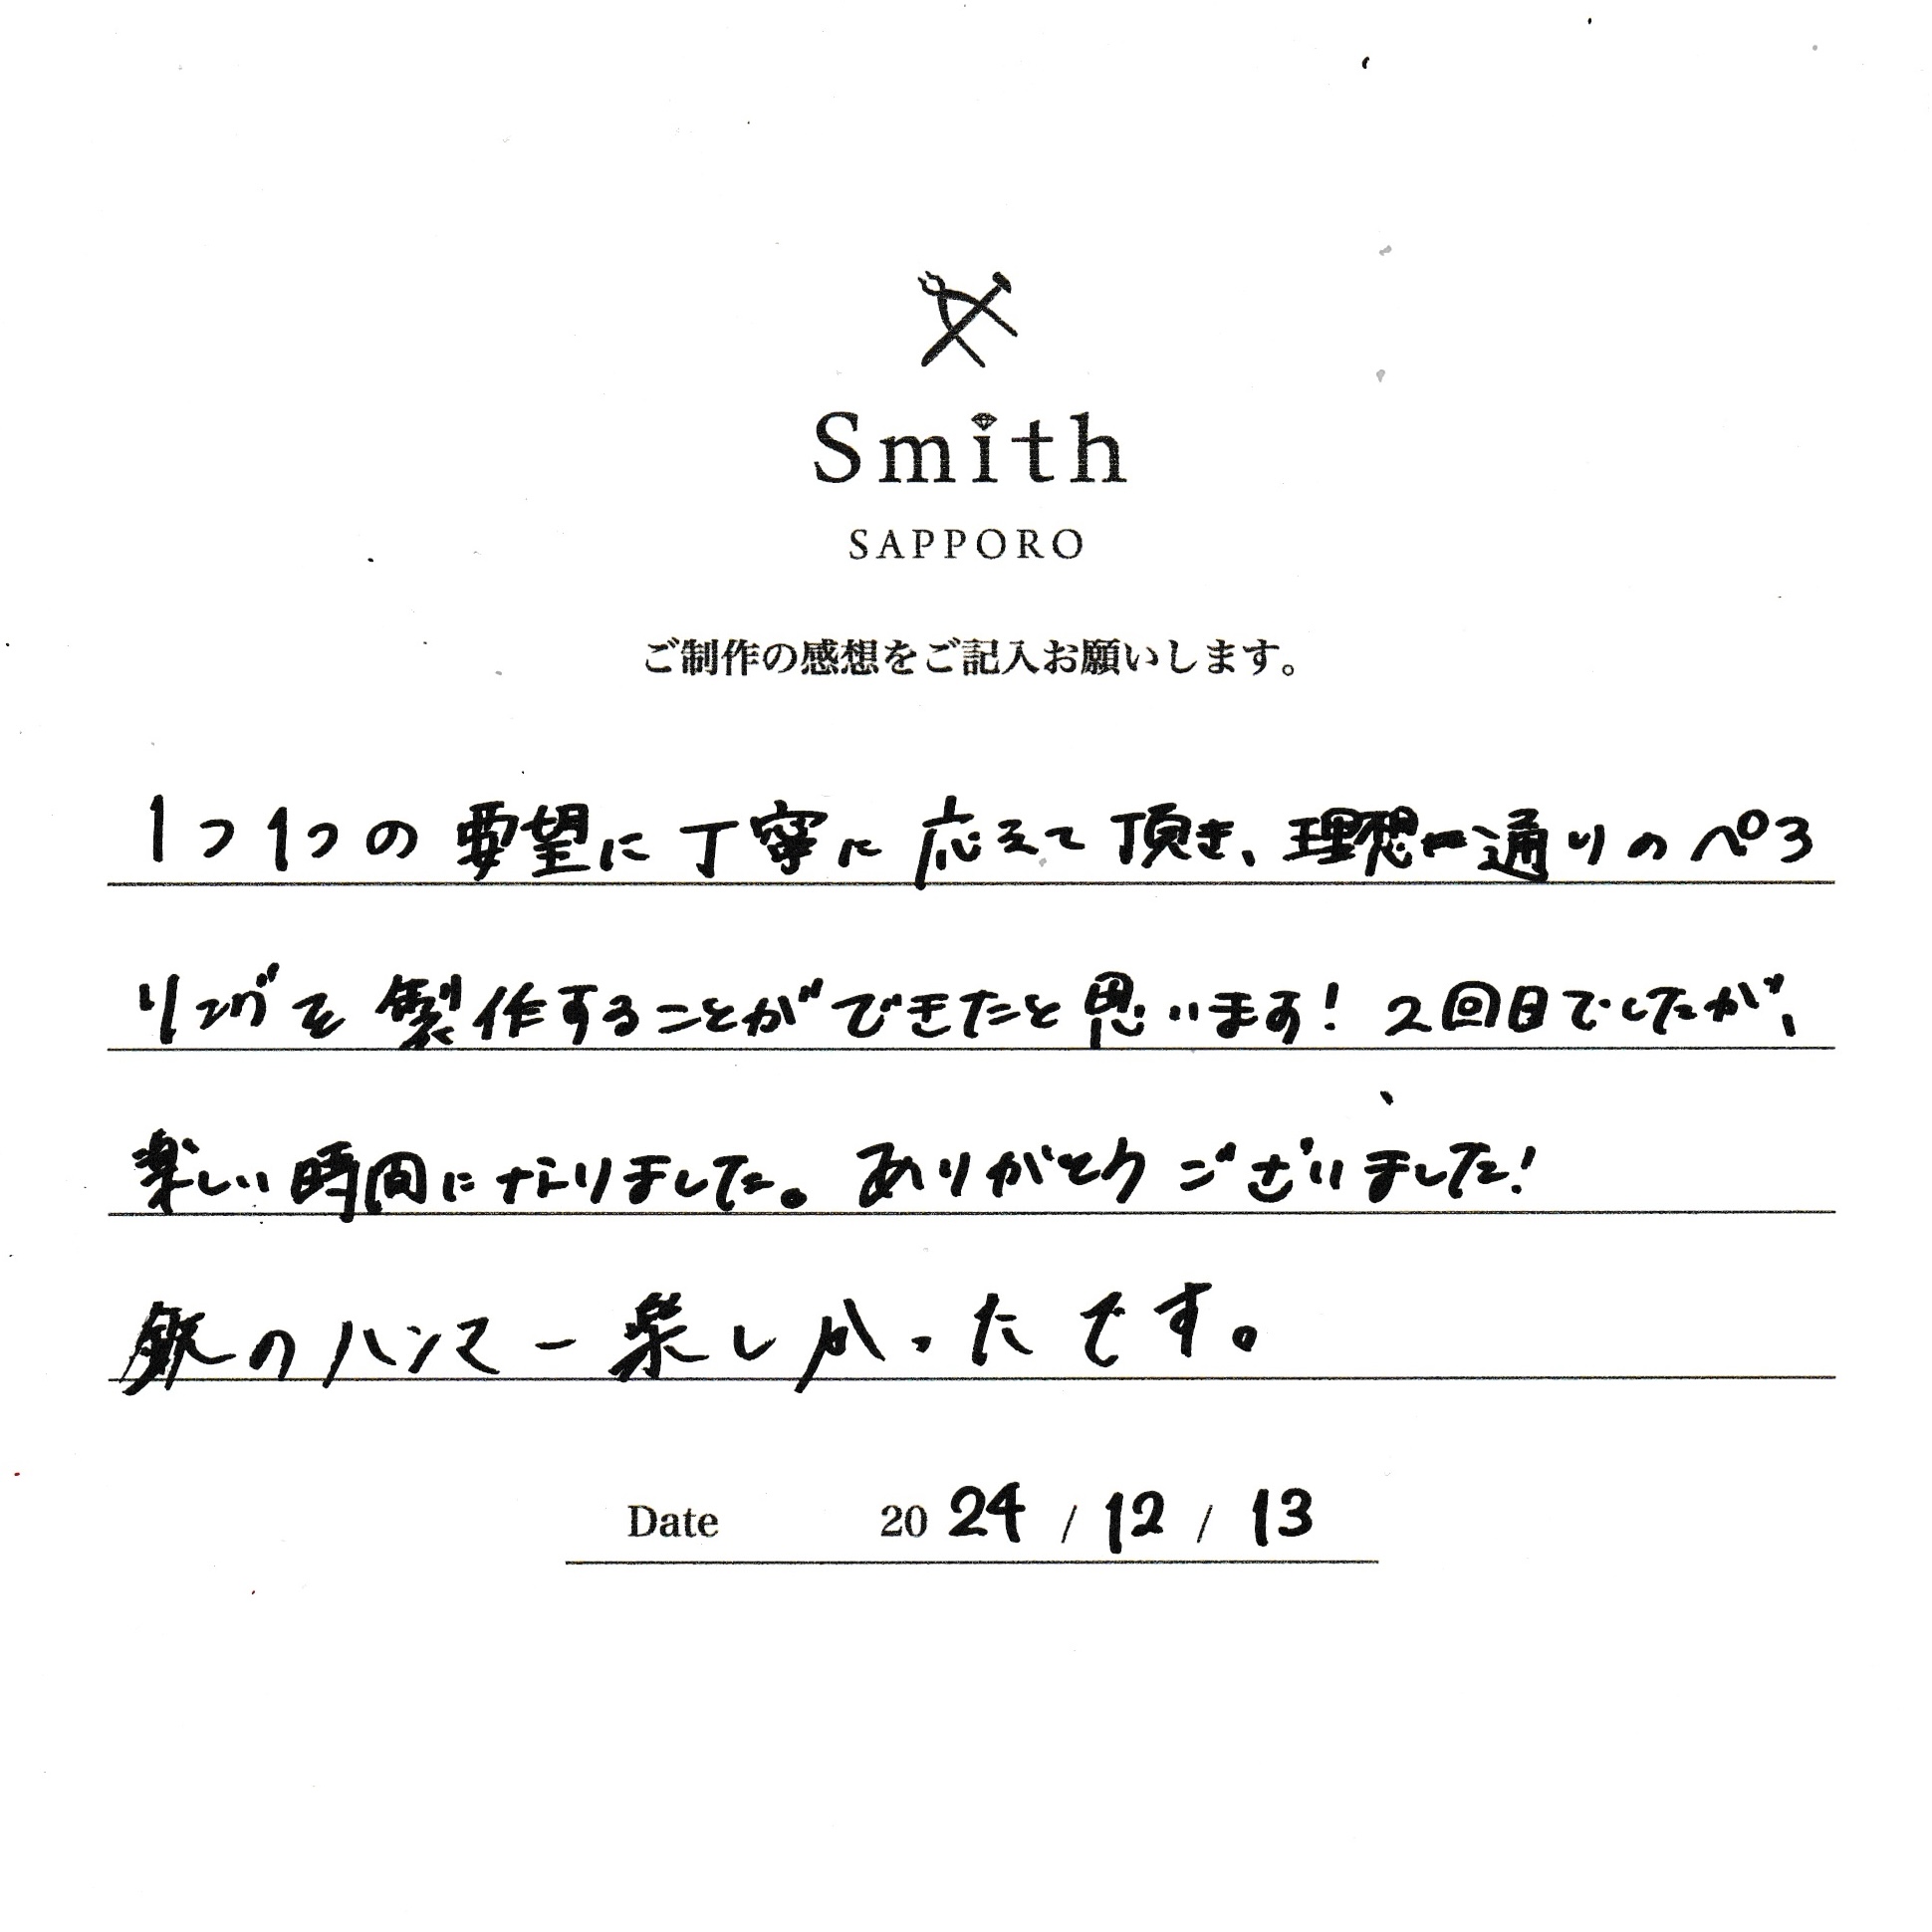 Smith
SAPPORO
ご制作の感想をご記入お願いします。
1つ1つの要望に丁寧に応えて頂き、理想通りのペア
リングを製作することができたと思います!2回目でしたが、
楽しい時間になりました。ありがとうございました!
のハンマー楽しかったです。
Date 2024/12/13